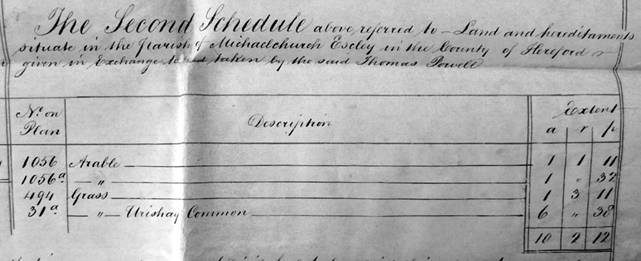 The Second Schedule above referred to – Land and hereditaments
situate in the Parish of Michaelchurch Escley in the County of Hereford
given in Exchange to and taken by the said Thomas Powell
No. on Plan Description Extent
a r p
1056 Arable 1 1 11
1056a " 1 " 32
494 Grass 1 3 11
31a " Urishay Common 6 " 38
10 2 12